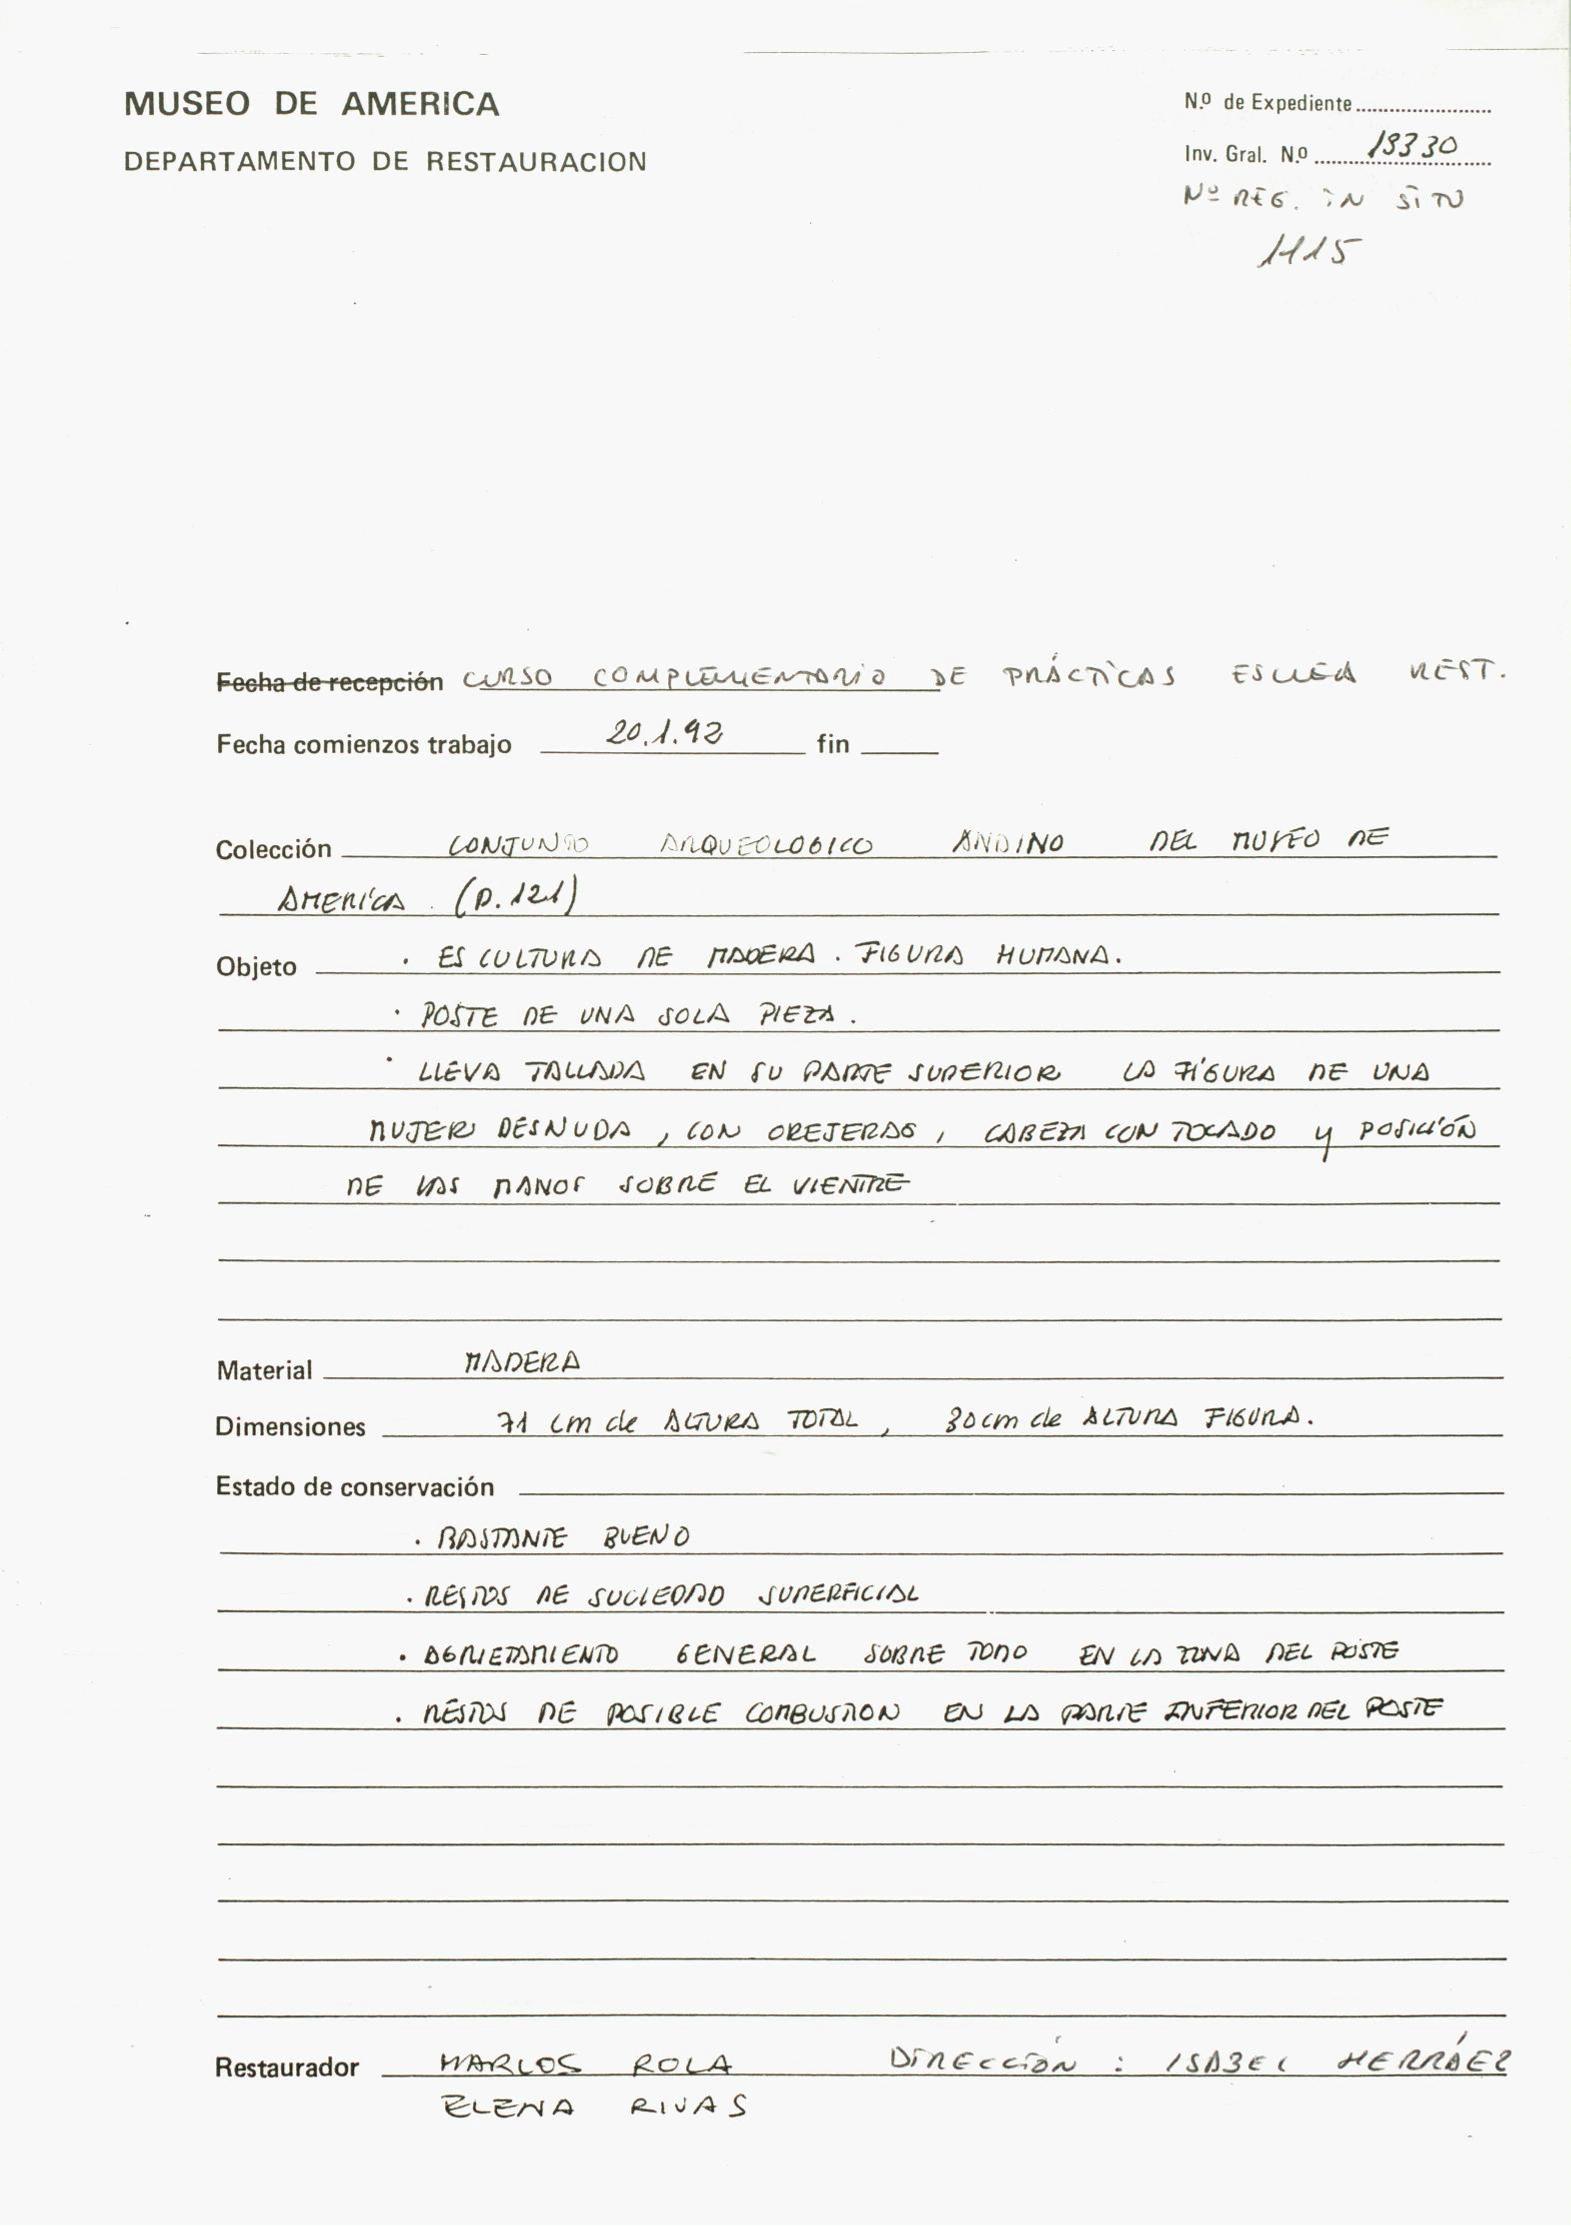 MUSEO DE AMERICA
DEPARTAMENTO DE RESTAURACION
N.º de Expediente
Inv. Gral. N.º 13330
Nº REG. IN SITU
1115
Fecha de recepción CURSO COMPLEMENTARIO DE PRÁCTICAS ESCUELA REST.
Fecha comienzos trabajo 20.1.92 fin
Colección CONJUNTO ARQUEOLOGICO ANDINO DEL MUSEO DE
AMERICA (P.121)
Objeto · ESCULTURA DE MADERA. FIGURA HUMANA.
· POSTE DE UNA SOLA PIEZA.
· LLEVA TALLADA EN SU PARTE SUPERIOR LA FÍGURA DE UNA
MUJER DESNUDA, CON OREJERAS, CABEZA CON TOCADO Y POSICIÓN
DE LAS MANOS SOBRE EL VIENTRE
Material MADERA
Dimensiones 71 cm de ALTURA TOTAL, 30 cm de ALTURA FIGURA.
Estado de conservación
· BASTANTE BUENO
· RESTOS DE SUCIEDAD SUPERFICIAL
· AGRIETAMIENTO GENERAL SOBRE TODO EN LA ZONA DEL POSTE
· RESTOS DE POSIBLE COMBUSTION EN LA PARTE INFERIOR DEL POSTE
Restaurador MARLOS ROLA DIRECCIÓN : ISABEL HERRÁEZ
ELENA RIVAS